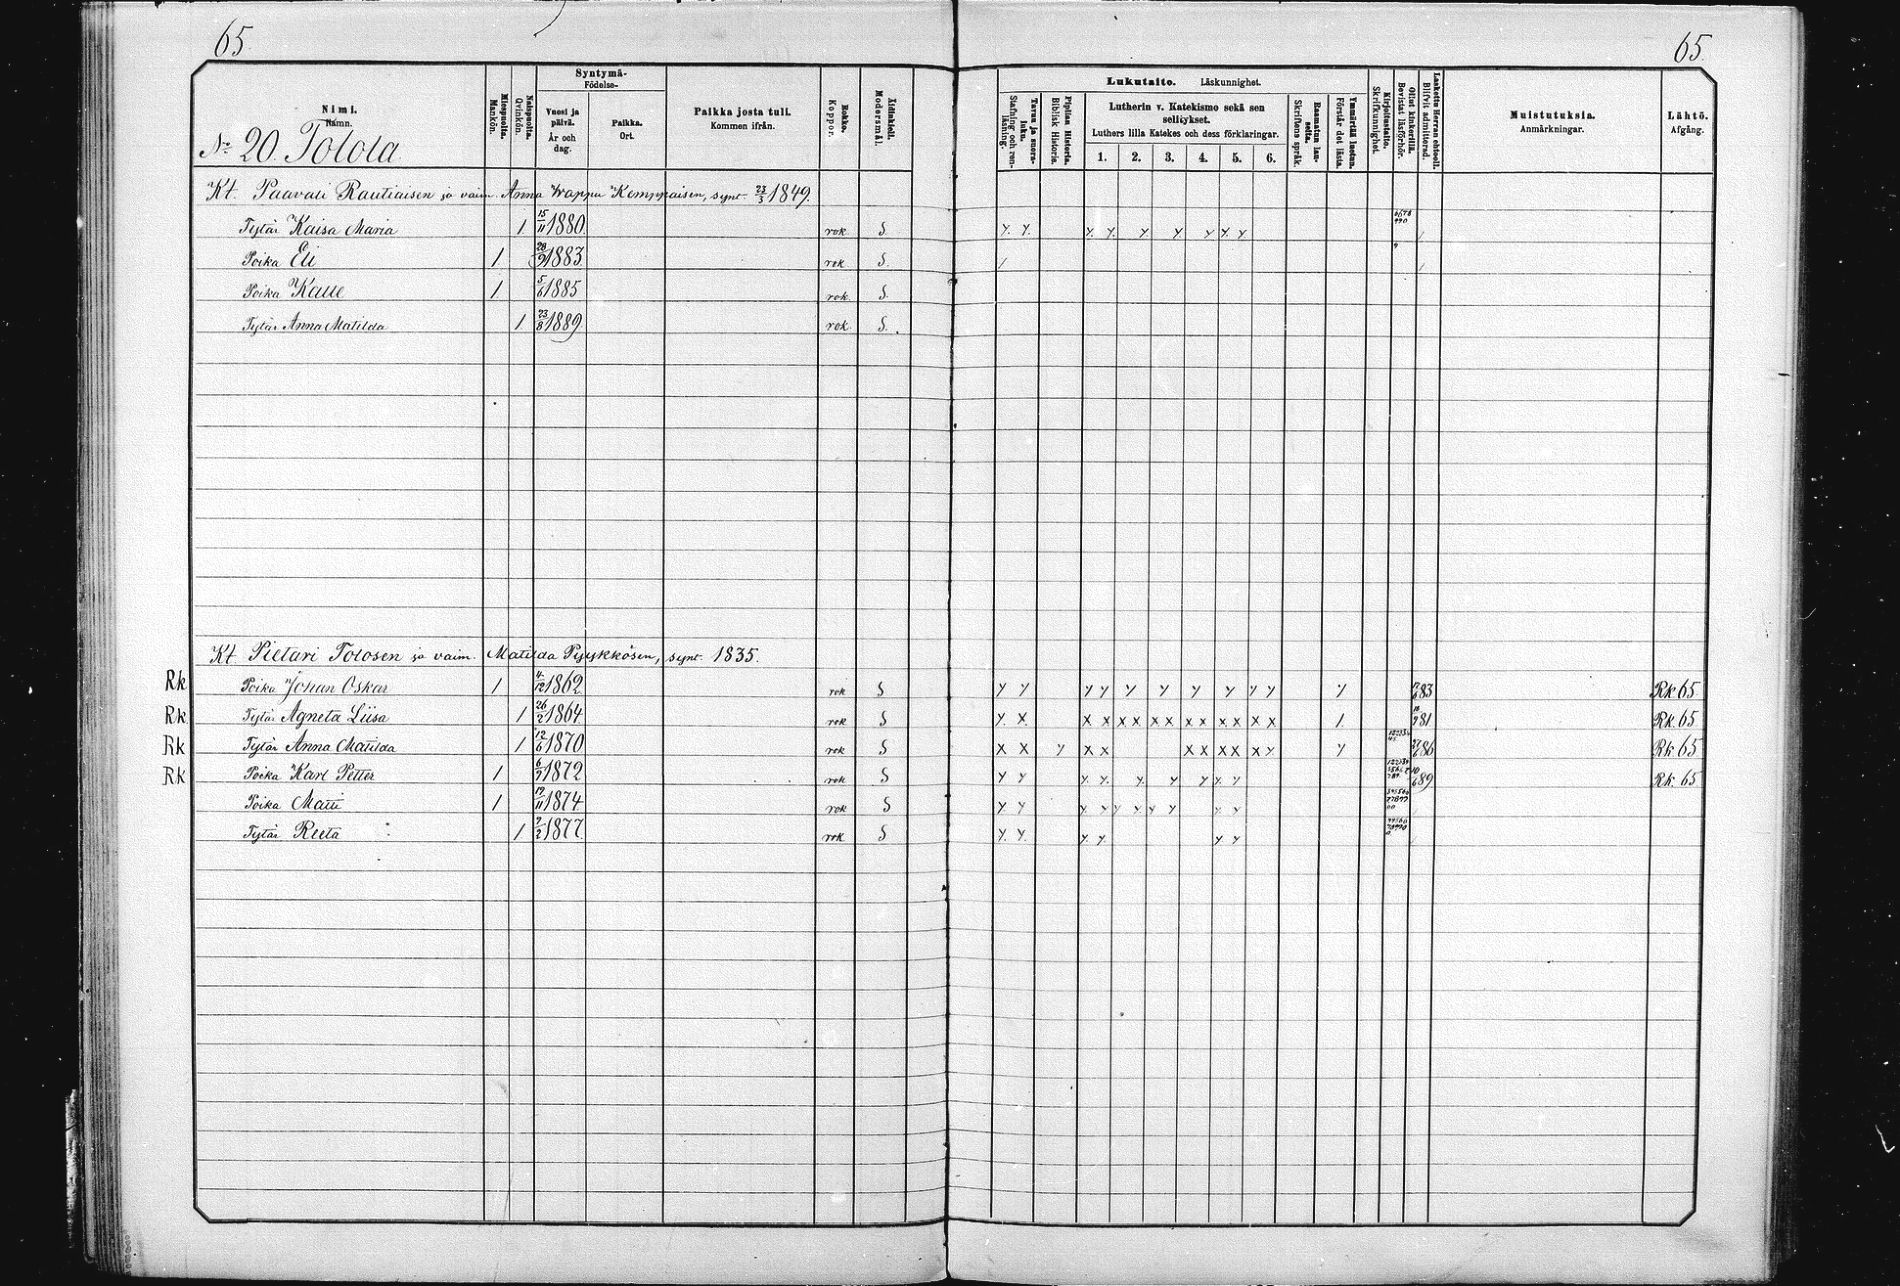 65.
65.
Nimi.
Namn.
Miespuolta.
Mankön.
Naispuolta.
Qvinkön.
Syntymä-
Födelse-
Vuosi ja päivä.
År och dag.
Paikka.
Ort.
Paikka josta tuli.
Kommen ifrån.
Rokko.
Koppor.
Äidinkieli.
Modersmål.
Lukutaito. Läskunnighet.
Tavuu ja suora-luku.
Stafning och ren-läsning.
Piplian Historia.
Biblisk Historia.
Lutherin v. Katekismo sekä sen selitykset.
Luthers lilla Katekes och dess förklaringar.
1. 2. 3. 4. 5. 6.
Raamatun lau-seita.
Skriftens språk.
Ymmärtää luetun.
Förstår det lästa.
Kirjoitustaito.
Skrifkunnighet.
Ollut kinkerillä.
Bevistat läsförhör.
Laskettu Herran ehtooll.
Blifvit admitterad.
Muistutuksia.
Anmärkningar.
Lähtö.
Afgång.
No 20. Tolola
Kt. Paavali Rautiaisen ja vaim. Anna Wappu Kemppaisen, synt. 23/3 1849.
Tytär Kaisa Maria 1 15/11 1880. rok S. y. y. y. y. y y y y. y
Poika Eli 1 1883. rok S. /
Poika Kalle 1. 5/6 1885 rok. S.
Tytär Anna Matilda 1 23/8 1889 rok. S.
Kt. Pietari Tolosen ja vaim. Matilda Pyykkösen, synt. 1835.
Rk Poika Johan Oskar 1 4/12 1862 rok S y y y y y y y y y y y 83 Rk 65
Rk Tytär Agneta Liisa 1 26/2 1864 rok S y. x. x x x x x x x x x x x x 1. 81 Rk. 65
Rk Tytär Anna Matilda 1 12/6 1870 rok S x x y x x x x x x x y y 86 Rk 65
Rk Poika Karl Petter 1 1872 rok S y y y. y. y. y y y. y 89 Rk. 65
Poika Matti 1 19/11 1874 rok S y y y. y y y y y y y
Tytär Reeta 1 1877. rok S y. y. y. y. y y